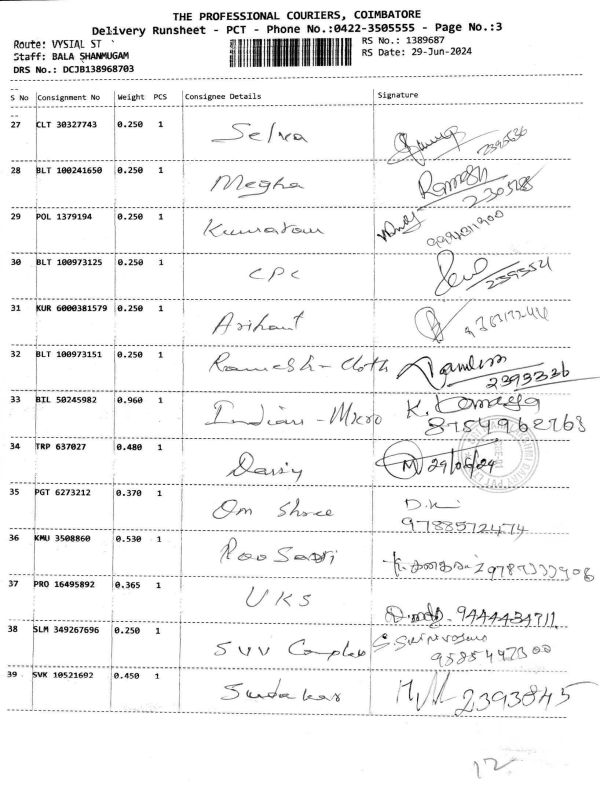 THE PROFESSIONAL COURIERS, COIMBATORE
Delivery Runsheet - PCT - Phone No.:0422-3505555 - Page No.:3
Route: VYSIAL ST
RS No.: 1389687
Staff: BALA SHANMUGAM
RS Date: 29-Jun-2024
DRS No.: DCJB138968703
S No Consignment No Weight PCS Consignee Details Signature
27 CLT 30327743 0.250 1 Selva
28 BLT 100241650 0.250 1 Megha Ramesh
29 POL 1379194 0.250 1
30 BLT 100973125 0.250 1 CPC
31 KUR 6000381579 0.250 1 Arihant
32 BLT 100973151 0.250 1 Ramesh - Cloth 2393336
33 BIL 50245982 0.960 1 Indian - Micro K.
8754962763
34 TRP 637027 0.480 1 Daisy 29/06/24
35 PGT 6273212 0.370 1 Om Shree D.K
9788572474
36 KMU 3508860 0.530 1
37 PRO 16495892 0.365 1 UKS 9444434711
38 SLM 349267696 0.250 1 SVV Complex
39 SVK 10521692 0.450 1 Sudakar 2393845
12